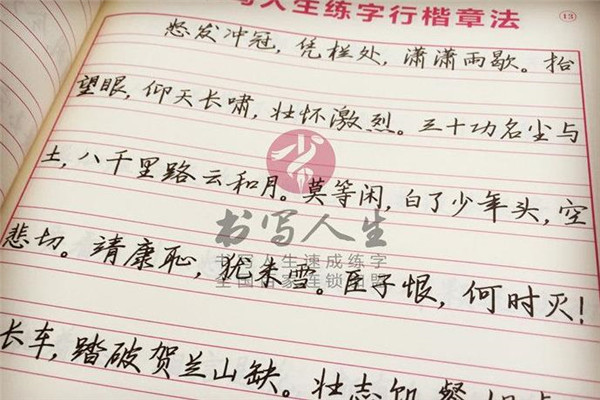 写人生练字行楷章法
13
怒发冲冠，凭栏处，潇潇雨歇。抬
望眼，仰天长啸，壮怀激烈。三十功名尘与
土，八千里路云和月。莫等闲，白了少年头，空
悲切。靖康耻，犹未雪。臣子恨，何时灭！
长车，踏破贺兰山缺。壮志饥餐
书写人生
书写人生速成练字